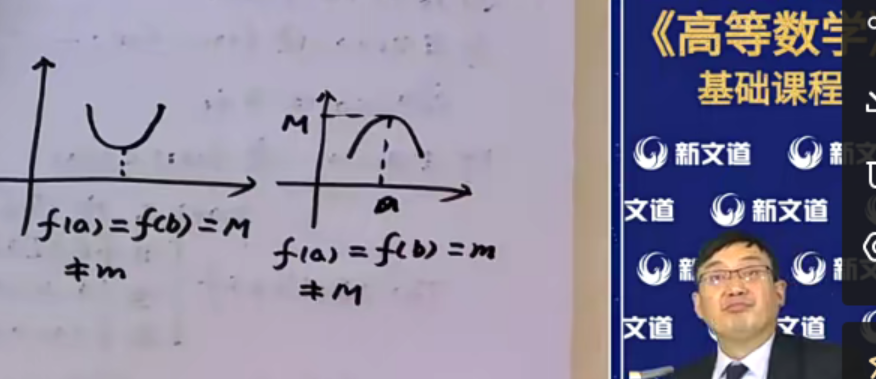 M
a
f(a)=f(b)=M
≠m
f(a)=f(b)=m
≠M
《高等数学
基础课程
新文道 新
文道 新文道
新
文道 文道